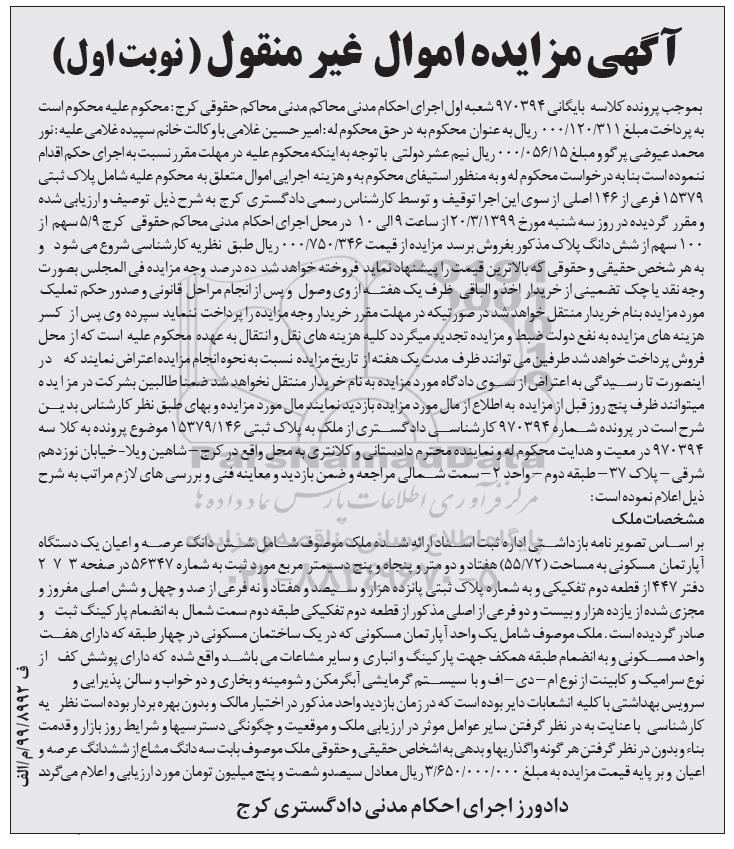 آگهی مزایده اموال غیر منقول (نوبت اول)
بموجب پرونده کلاسه بایگانی ۹۷۰۳۹۴ شعبه اول اجرای احکام مدنی محاکم مدنی محاکم حقوقی کرج: محکوم علیه محکوم است
به پرداخت مبلغ ۰۰۰/۱۲۰/۳۱۱ ریال به عنوان محکوم به در حق محکوم له: امیر حسین غلامی با وکالت خانم سپیده غلامی علیه: نور
محمد عیوضی پرگو و مبلغ ۰۰۰/۰۵۶/۱۵ ریال نیم عشر دولتی با توجه به اینکه محکوم علیه در مهلت مقرر نسبت به اجرای حکم اقدام
ننموده است بنا به درخواست محکوم له و به منظور استیفای محکوم به و هزینه اجرایی اموال متعلق به محکوم علیه شامل پلاک ثبتی
۱۵۳۷۹ فرعی از ۱۴۶ اصلی از سوی این اجرا توقیف و توسط کارشناس رسمی دادگستری کرج به شرح ذیل توصیف و ارزیابی شده
و مقرر گردیده در روز سه شنبه مورخ ۲۰/۳/۱۳۹۹ از ساعت ۹ الی ۱۰ در محل اجرای احکام مدنی محاکم حقوقی کرج ۵/۹ سهم از
۱۰۰ سهم از شش دانگ پلاک مذکور بفروش برسد مزایده از قیمت ۰۰۰/۷۵۰/۳۴۶ ریال طبق نظریه کارشناسی شروع می شود و
به هر شخص حقیقی و حقوقی که بالاترین قیمت را پیشنهاد نماید فروخته خواهد شد ده درصد وجه مزایده فی المجلس بصورت
وجه نقد یا چک تضمینی از خریدار اخذ و الباقی ظرف یک هفته از وی وصول و پس از انجام مراحل قانونی و صدور حکم تملیک
مورد مزایده بنام خریدار منتقل خواهد شد در صورتیکه در مهلت مقرر خریدار وجه مزایده را پرداخت ننماید سپرده وی پس از کسر
هزینه های مزایده به نفع دولت ضبط و مزایده تجدید میگردد کلیه هزینه های نقل و انتقال به عهده محکوم علیه است که از محل
فروش پرداخت خواهد شد طرفین می توانند ظرف مدت یک هفته از تاریخ مزایده نسبت به نحوه انجام مزایده اعتراض نمایند که در
اینصورت تا رسیدگی به اعتراض از سوی دادگاه مورد مزایده به نام خریدار منتقل نخواهد شد ضمنا طالبین بشرکت در مزایده
میتوانند ظرف پنج روز قبل از مزایده به اطلاع از مال مورد مزایده بازدید نمایند مال مورد مزایده و بهای طبق نظر کارشناس بدین
شرح است در پرونده شماره ۹۷۰۳۹۴ کارشناسی دادگستری از ملک به پلاک ثبتی ۱۵۳۷۹/۱۴۶ موضوع پرونده به کلا سه
۹۷۰۳۹۴ در معیت و هدایت محکوم له و نماینده محترم دادستانی و کلانتری به محل واقع در کرج – شاهین ویلا- خیابان نوزدهم
شرقی – پلاک ۳۷ – طبقه دوم – واحد ۲ – سمت شمالی مراجعه و ضمن بازدید و معاینه فنی و بررسی های لازم مراتب به شرح
ذیل اعلام نموده است:
مشخصات ملک
بر اساس تصویر نامه بازداشتی اداره ثبت اسناد ارائه شده ملک موصوف شامل شش دانگ عرصه و اعیان یک دستگاه
آپارتمان مسکونی به مساحت (۵۵/۷۲) هفتاد و دو متر و پنجاه و پنج دسیمتر مربع مورد ثبت به شماره ۵۶۳۴۷ در صفحه ۳ ۷ ۲
دفتر ۴۴۷ از قطعه دوم تفکیکی و به شماره پلاک ثبتی پانزده هزار و سیصد و هفتاد و نه فرعی از صد و چهل و شش اصلی مفروز و
مجزی شده از یازده هزار و بیست و دو فرعی از اصلی مذکور از قطعه دوم تفکیکی طبقه دوم سمت شمال به انضمام پارکینگ ثبت و
صادر گردیده است. ملک موصوف شامل یک واحد آپارتمان مسکونی که در یک ساختمان مسکونی در چهار طبقه که دارای هفت
واحد مسکونی و به انضمام طبقه همکف جهت پارکینگ و انباری و سایر مشاعات می باشد واقع شده که دارای پوشش کف از
نوع سرامیک و کابینت از نوع ام – دی – اف و با سیستم گرمایشی آبگرمکن و شومینه و بخاری و دو خواب و سالن پذیرایی و
سرویس بهداشتی با کلیه انشعابات دایر بوده است که در زمان بازدید واحد مذکور در اختیار مالک و بدون بهره بردار بوده است نظر یه
کارشناسی با عنایت به در نظر گرفتن سایر عوامل موثر در ارزیابی ملک و موقعیت و چگونگی دسترسیها و شرایط روز بازار و قدمت
بناء و بدون در نظر گرفتن هر گونه واگذاریها و بدهی به اشخاص حقیقی و حقوقی ملک موصوف بابت سه دانگ مشاع از ششدانگ عرصه و
اعیان و بر پایه قیمت مزایده به مبلغ ۳/۶۵۰/۰۰۰/۰۰۰ ریال معادل سیصدو شصت و پنج میلیون تومان مورد ارزیابی و اعلام می گردد
دادورز اجرای احکام مدنی دادگستری کرج
ف ۹۹/۸۹۹۲/م/الف
ParsNamadData
مرکز فرآوری اطلاعات پارس نماد داده ها
پایگاه اطلاع رسانی مناقصه و مزایده
۰۲۱-۸۸۳۴۹۶۷۰-۵